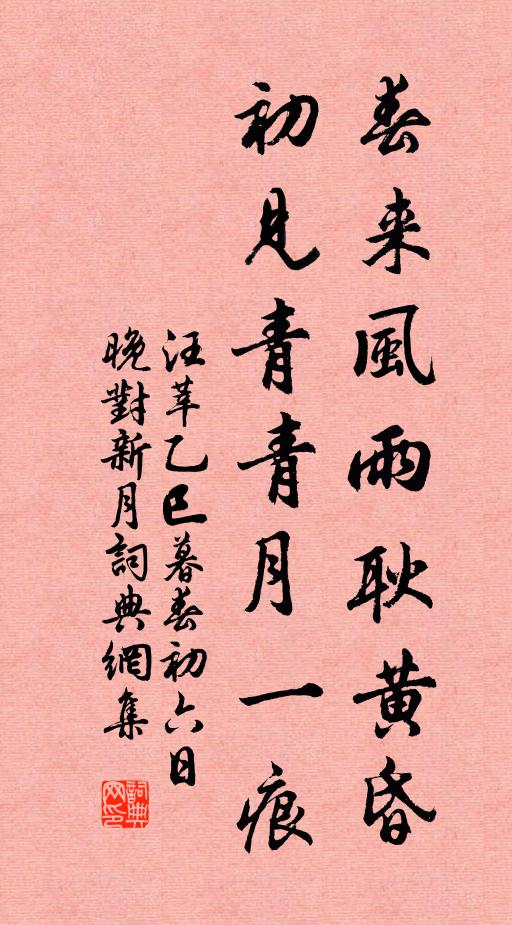 春来風雨耿黄昏
初見青青月一痕
汪莘乙巳暮春初六日
晚對新月詞典網集
詞典网印